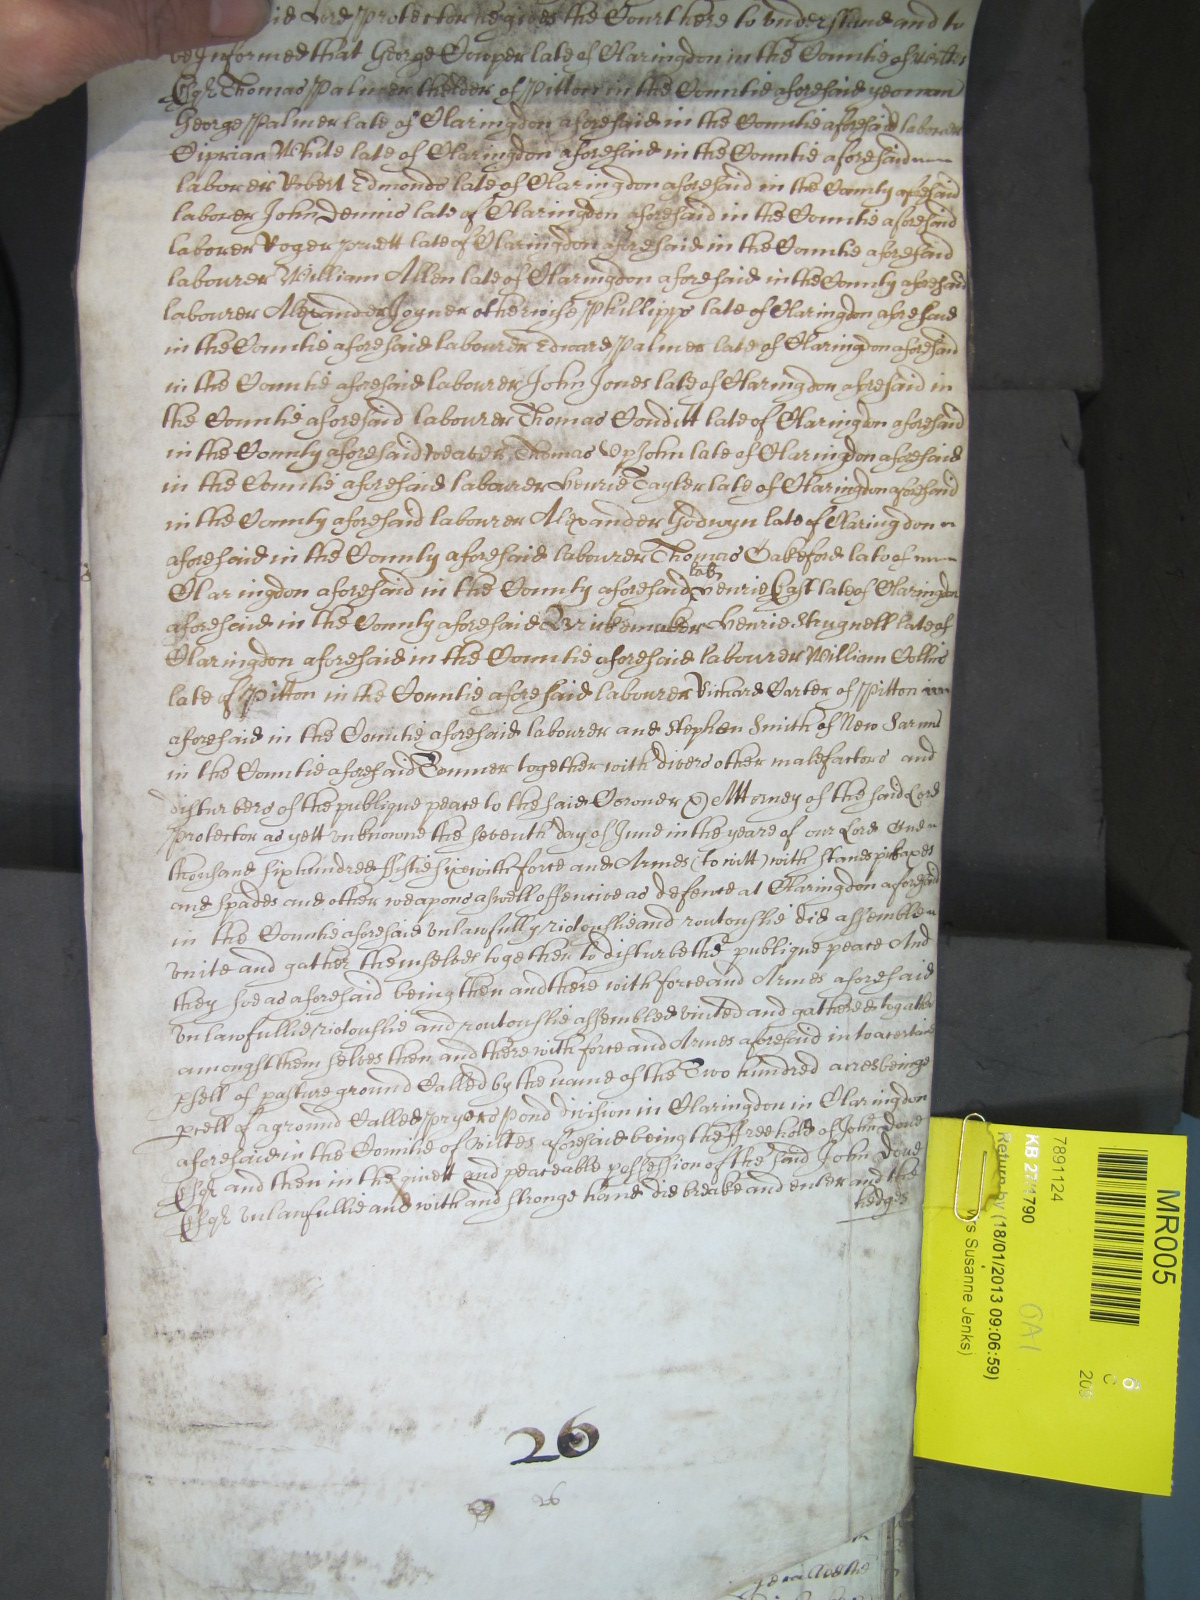 said Lord Protector he gives the Court here to understand and to
be Informed that George Cowper late of Claringdon in the Countie of Wiltes
Esqr Thomas Palmer the elder of Pitton in the Countie aforesaid yeoman
George Palmer late of Claringdon aforesaid in the Countie aforesaid labourer
Ciprian White late of Claringdon aforesaid in the Countie aforesaid
laborer Robert Edmonds late of Claringdon aforesaid in the County aforesaid
laborer John Dennis late of Claringdon aforesaid in the Countie aforesaid
laborer Roger late of Claringdon aforesaid in the Countie aforesaid
labourer William Allen late of Claringdon aforesaid in the County aforesaid
labourer Alexander Joyner otherwise Phillipps late of Claringdon aforesaid
in the Countie aforesaid labourer Edward Palmer late of Claringdon aforesaid
in the Countie aforesaid labourer John Jones late of Claringdon aforesaid in
the Countie aforesaid labourer Thomas Conditt late of Claringdon aforesaid
in the County aforesaid Weaver Thomas Upjohn late of Claringdon aforesaid
in the Countie aforesaid labourer Henrie Tayler late of Claringdon aforesaid
in the County aforesaid labourer Alexander Godwyn late of Claringdon
aforesaid in the County aforesaid labourer Thomas Oakeford late of
Claringdon aforesaid in the County aforesaid lab Henrie East late of Claringdon
aforesaid in the County aforesaid Brickemaker Henrie Strugnell late of
Claringdon aforesaid in the Countie aforesaid labourer William Collins
late of Pitton in the Countie aforesaid labourer Richard Carter of Pitton
aforesaid in the Countie aforesaid labourer and Stephen Smith of New Sarum
in the Countie aforesaid together with divers other malefactors and
disturbers of the publique peace to the said Coroner & Attorney of the said Lord
Protector as yett unknowne the seventh day of June in the yeare of our Lord One
thousand six hundred fiftie six with force and Armes (to witt) with staves pikaxes
and spades and other weapons aswell offencive as defence at Claringdon aforesaid
in the Countie aforesaid unlawfully riotouslie and routouslie did assemble
unite and gather themselves together to disturbe the publique peace And
they soe as aforesaid being then and there with force and Armes aforesaid
unlawfullie riotouslie and routouslie assembled united and gathered togather
amongst themselves then and there with force and Armes aforesaid into a certaine
psell of pasture ground Called by the name of the Two hundred acres beinge
pcell of a ground Called Pryers Pond division in Claringdon in Claringdon
aforesaid in the Countie of Wiltes aforesaid being the Freehold of John Dove
Esqr and then in the quiett and peaceable possession of the said John Dove
Esqr unlawfullie and with and stronge hand did breake and enter and the
hedges
26
26
MR005
7891124
KB 27/1790
Return by (18/01/2013 09:06:59)
Susanne Jenks)
6
C